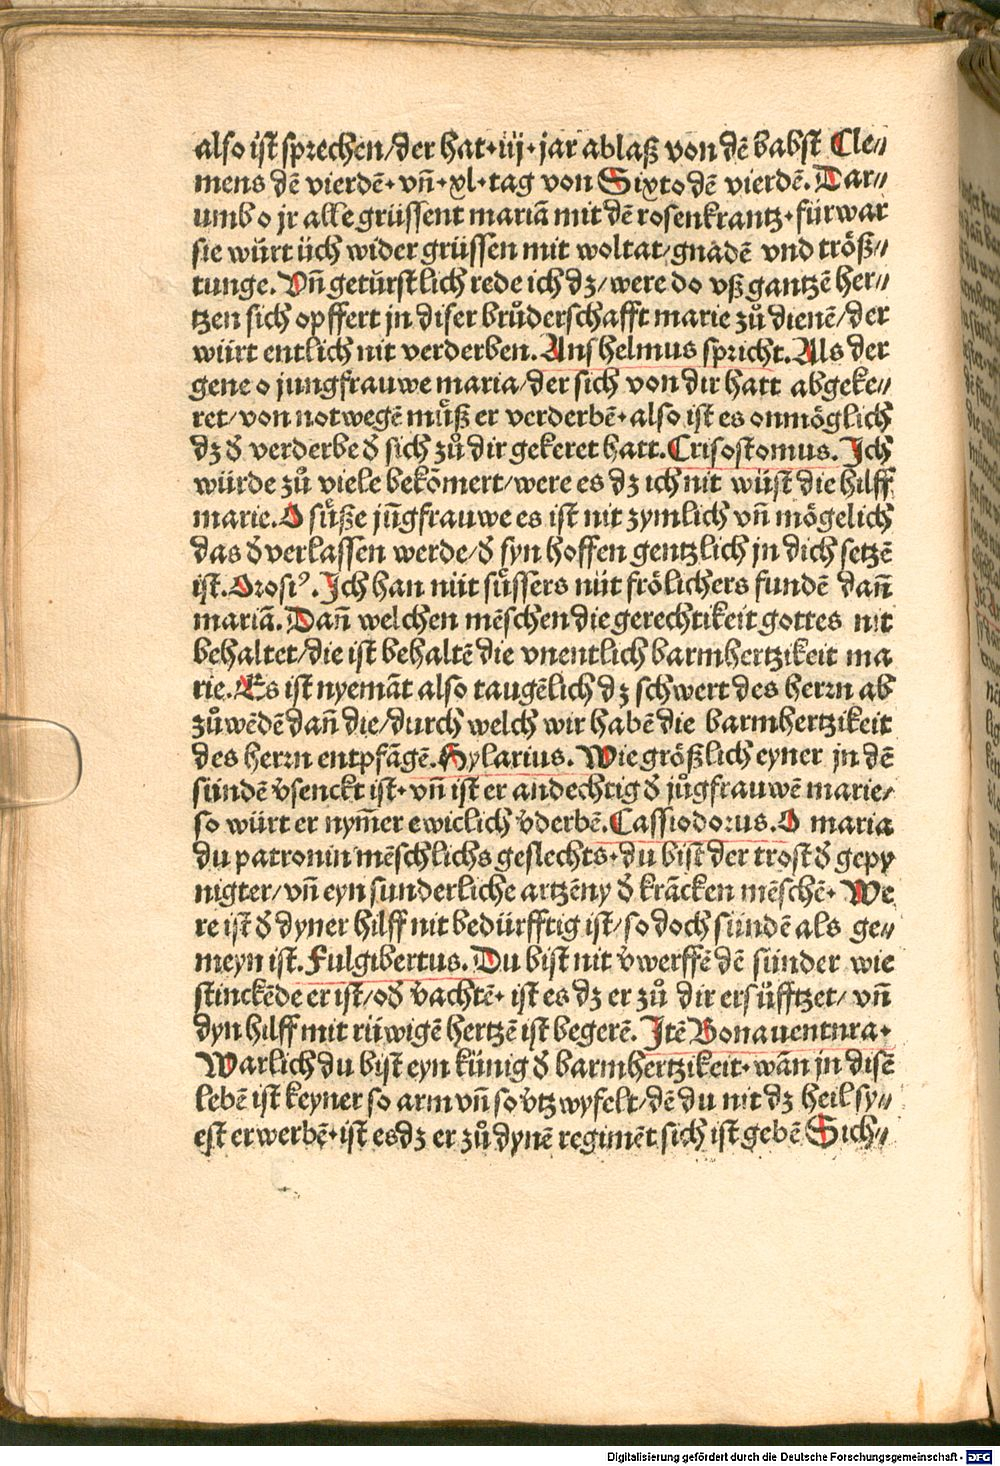 also ist sprechen/der hat·iij·jar ablaß von dē babst Cle⸗
mens dē vierdē·vn̄·xl·tag von Sixto dē vierdē. Dar⸗
umb o jr alle grüssent mariā mit dē rosenkrantz·fürwar
sie würt üch wider grüssen mit woltat/gnadē vnd tröß⸗
tunge. Vn̄ getürstlich rede ich dz/were do vß gantzē her⸗
tzen sich opffert jn diser brůderschafft marie zů dienē/der
würt entlich nit verderben. Anshelmus spricht. Als der
gene o jungfrauwe maria/der sich von dir hatt abgeke⸗
ret/von notwegē můß er verderbē·also ist es onmöglich
dz d' verderbe d' sich zů dir gekeret hatt. Crisostomus. Ich
würde zů viele bekōmert/were es dz ich nit wüst die hilff
marie. O süße jūgfrauwe es ist nit zymlich vn̄ mögelich
das d' verlassen werde/d' syn hoffen gentzlich jn dich setzē
ist. Orosiꝰ. Ich han nüt süssers nüt frölichers fundē dan̄
mariā. Dan̄ welchen mēschen die gerechtikeit gottes nit
behaltet/die ist behaltē die vnentlich barmhertzikeit ma
rie. Es ist nyemāt also taugēlich dz schwert des herrn ab
zůwēdē dan̄ die/durch welch wir habē die barmhertzikeit
des herrn entpfāgē. Hylarius. Wie größlich eyner jn dē
sündē v'senckt ist·vn̄ ist er andechtig d' jūgfrauwē marie/
so würt er nym̄er ewiclich v'derbē. Cassiodorus. O maria
du patronin mēschlichs geslechts·du bist der trost d' gepy
nigter/vn̄ eyn sunderliche artzēny d' krācken mēschē· We
re ist d' dyner hilff nit bedürfftig ist/so doch sündē als ge⸗
meyn ist. Fulgibertus. Du bist nit v'werffē dē sünder wie
stinckēde er ist/od' v'achtē·ist es dz er zů dir ersüfftzet/vn̄
dyn hilff mit rüwigē hertzē ist begerē. Itē Bonauentura·
Warlich du bist eyn künig d' barmhertzikeit·wān jn disē
lebē ist keyner so arm vn̄ so v'tzwyfelt/dē du nit dz heil sy⸗
est erwerbē·ist es dz er zů dynē regimēt sich ist gebē Sich⸗
Digitalisierung gefördert durch die Deutsche Forschungsgemeinschaft - DFG